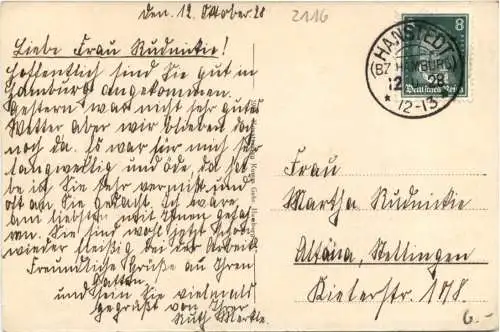 den. 12. Oktober. 28
2116
Liebe Frau Rudnickie!
Hoffentlich sind Sie gut in
Hamburg angekommen.
Gestern war nicht sehr gutes
Wetter aber wir blieben doch
noch da. Es war für mich sehr
langweilig und öde, da
be ich Sie sehr vermißt und
oft an Sie gedacht. Ich wäre
am liebsten mit Ihnen gefah
ren. Sie sind wohl jetzt schon
wieder fleißig bei der Arbeit.
Freundliche Grüße an Ihren
Gatten
und sein Sie vielmals
gegrüßt von Ihrer
Ruth Merkle.
HANSTEDT
(BZ HAMBURG)
12 28
* 12-13
8
Deutsches Reich
Frau
Martha Rudnickie
Altona, Stellingen
Kielerstr. 108.
6.-